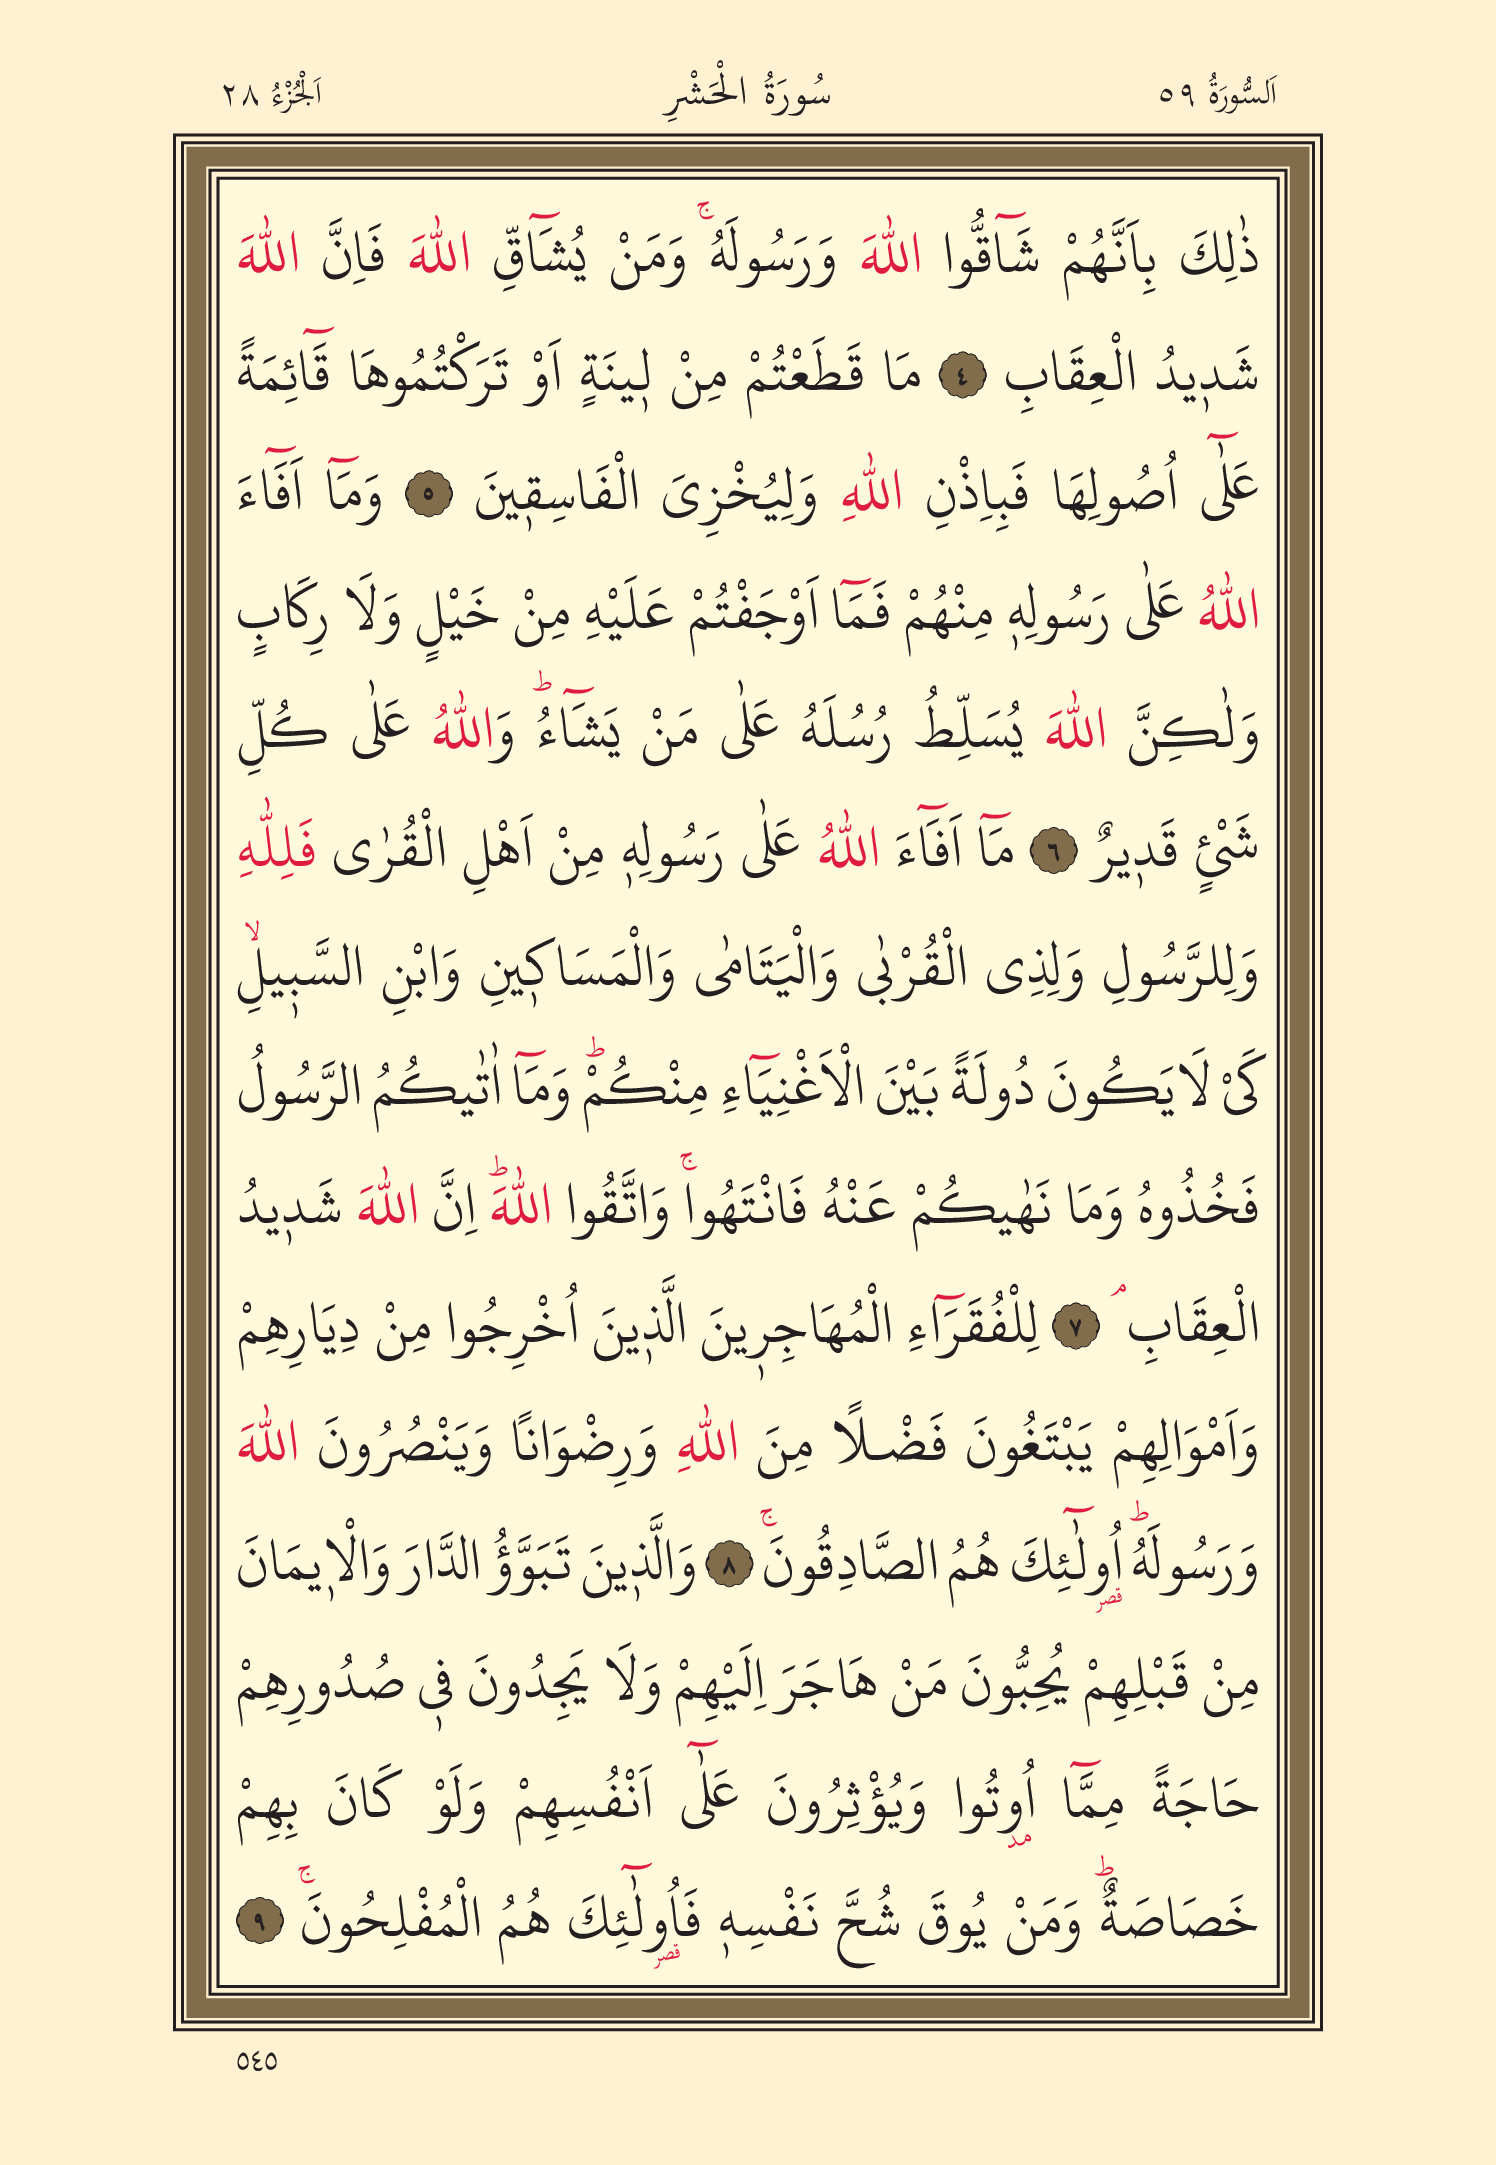 اَلسُّورَةُ ٥٩ سُورَةُ الْحَشْرِ اَلْجُزْءُ ٢٨
ذٰلِكَ بِاَنَّهُمْ شَٓاقُّوا اللّٰهَ وَرَسُولَهُۚ وَمَنْ يُشَٓاقِّ اللّٰهَ فَاِنَّ اللّٰهَ
شَد۪يدُ الْعِقَابِ ﴿٤﴾ مَا قَطَعْتُمْ مِنْ ل۪ينَةٍ اَوْ تَرَكْتُمُوهَا قَٓائِمَةً
عَلٰٓى اُصُولِهَا فَبِاِذْنِ اللّٰهِ وَلِيُخْزِىَ الْفَاسِق۪ينَ ﴿٥﴾ وَمَٓا اَفَٓاءَ
اللّٰهُ عَلٰى رَسُولِه۪ مِنْهُمْ فَمَٓا اَوْجَفْتُمْ عَلَيْهِ مِنْ خَيْلٍ وَلَا رِكَابٍ
وَلٰكِنَّ اللّٰهَ يُسَلِّطُ رُسُلَهُ عَلٰى مَنْ يَشَٓاءُۜ وَاللّٰهُ عَلٰى كُلِّ
شَىْئٍ قَد۪يرٌ ﴿٦﴾ مَٓا اَفَٓاءَ اللّٰهُ عَلٰى رَسُولِه۪ مِنْ اَهْلِ الْقُرٰى فَلِلّٰهِ
وَلِلرَّسُولِ وَلِذِى الْقُرْبٰى وَالْيَتَامٰى وَالْمَسَاك۪ينِ وَابْنِ السَّب۪يلِۙ
كَىْ لَا يَكُونَ دُولَةً بَيْنَ الْاَغْنِيَٓاءِ مِنْكُمْۜ وَمَٓا اٰتٰيكُمُ الرَّسُولُ
فَخُذُوهُ وَمَا نَهٰيكُمْ عَنْهُ فَانْتَهُواۚ وَاتَّقُوا اللّٰهَۜ اِنَّ اللّٰهَ شَد۪يدُ
الْعِقَابِۢ ﴿٧﴾ لِلْفُقَرَٓاءِ الْمُهَاجِر۪ينَ الَّذ۪ينَ اُخْرِجُوا مِنْ دِيَارِهِمْ
وَاَمْوَالِهِمْ يَبْتَغُونَ فَضْلًا مِنَ اللّٰهِ وَرِضْوَانًا وَيَنْصُرُونَ اللّٰهَ
وَرَسُولَهُۜ اُو۬لٰٓئِكَ هُمُ الصَّادِقُونَۚ ﴿٨﴾ وَالَّذ۪ينَ تَبَوَّؤُ الدَّارَ وَالْا۪يمَانَ
مِنْ قَبْلِهِمْ يُحِبُّونَ مَنْ هَاجَرَ اِلَيْهِمْ وَلَا يَجِدُونَ ف۪ى صُدُورِهِمْ
حَاجَةً مِمَّٓا اُو۫تُوا وَيُؤْثِرُونَ عَلٰٓى اَنْفُسِهِمْ وَلَوْ كَانَ بِهِمْ
خَصَاصَةٌۜ وَمَنْ يُوقَ شُحَّ نَفْسِه۪ فَاُو۬لٰٓئِكَ هُمُ الْمُفْلِحُونَۚ ﴿٩﴾
٥٤٥